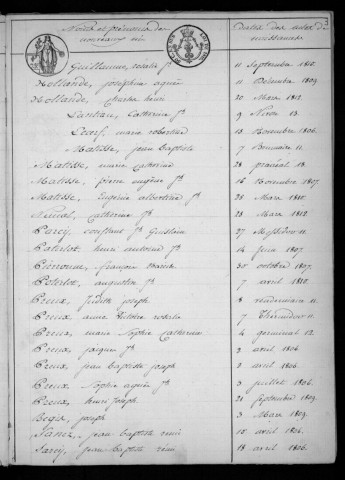 3
Noms et prénoms des
nouveaux nés
Dates des actes de
naissances
Guillaume, rosalie jh 11 Septembre 1810.
Hollande, joséphine agnès 11 Décembre 1809.
Hollande, Charles henri 20 Mars 1812.
Lantrain, Catherine jh 9 Nivose 13.
Lecerf, marie robertine 13 Novembre 1806.
Matisse, jean baptiste 7 Brumaire 11.
Matisse, marie catherine 28 prairial 13.
Matisse, pierre eugène jh 16 Novembre 1807.
Matisse, Eugenie albertine jh 28 Mars 1810.
Catherine jh 23 Mars 1812
Parcy, constant jh Guislain 27 Messidor 11.
Paterlot, henri antoine jh 14 juin 1807.
Peronne, françois 30 octobre 1807.
Poterlot, augustin jh 7 avril 1810.
Preux, judith joseph 8 vendémiaire 11.
Preux, anne Victoire rosalie 7 Thermidor 11.
Preux, marie Sophie catherine 4 germinal 12.
Preux, jacques jh 3 avril 1806.
Preux, jean baptiste joseph 2 avril 1806.
Preux, Sophie agnès jh 3 juillet 1806.
Preux, henri joseph 21 Septembre 1809.
Begis, joseph 3 Mars 1809.
jean baptiste remi 10 avril 1806.
Sarcy, jean baptiste rémi 18 avril 1806.